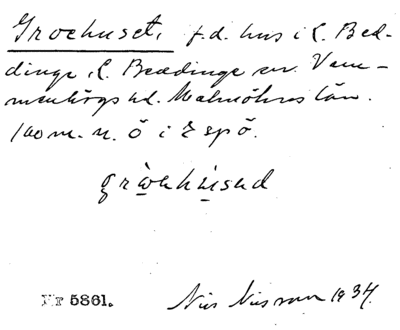 Groehuset. f.d. hus i L. Bed-
dinge, L. Beddinge sn. Vem-
menhögs hd. Malmöhus län.
100 m. n. ö i
gròehùsed
Nr 5861. Nils Nilsson 1934.